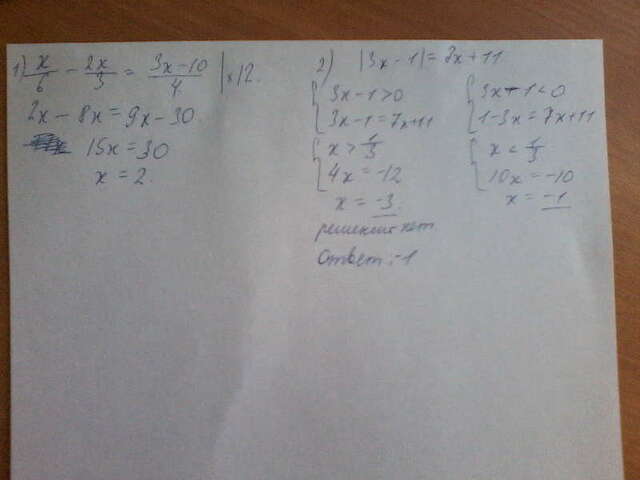 1) x/6 - 2x/3 = 3x-10/4 | x12.
2x - 8x = 9x - 30
15x = 30
x = 2.
2) |3x - 1| = 7x + 11
3x - 1 > 0
3x - 1 = 7x + 11
x > 1/3
4x = -12
x = -3.
решений нет
3x - 1 < 0
1 - 3x = 7x + 11
x < 1/3
10x = -10
x = -1
Ответ: -1